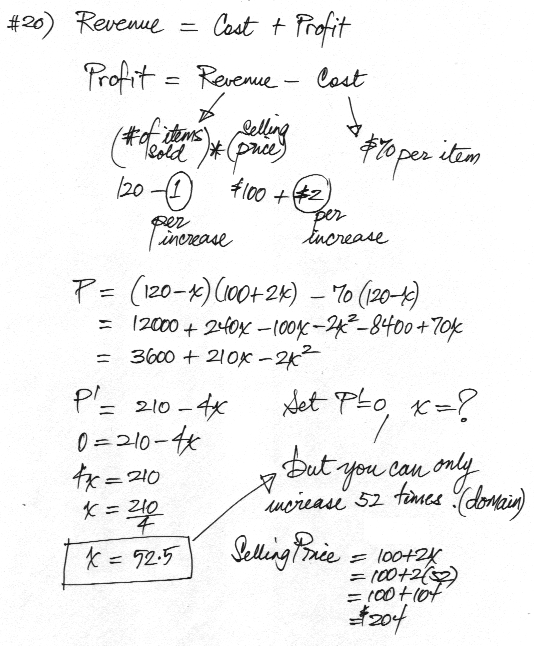 #20) Revenue = Cost + Profit
Profit = Revenue - Cost
(# of items sold) * (selling price)
$70 per item
120 - 1 per increase
$100 + $2 per increase
P = (120-x)(100+2x) - 70(120-x)
= 12000 + 240x - 100x - 2x² - 8400 + 70x
= 3600 + 210x - 2x²
P' = 210 - 4x
0 = 210 - 4x
4x = 210
x = 210/4
x = 52.5
Set P'=0, x=?
but you can only
increase 52 times. (domain)
Selling Price = 100+2x
= 100+2(52)
= 100+104
= $204